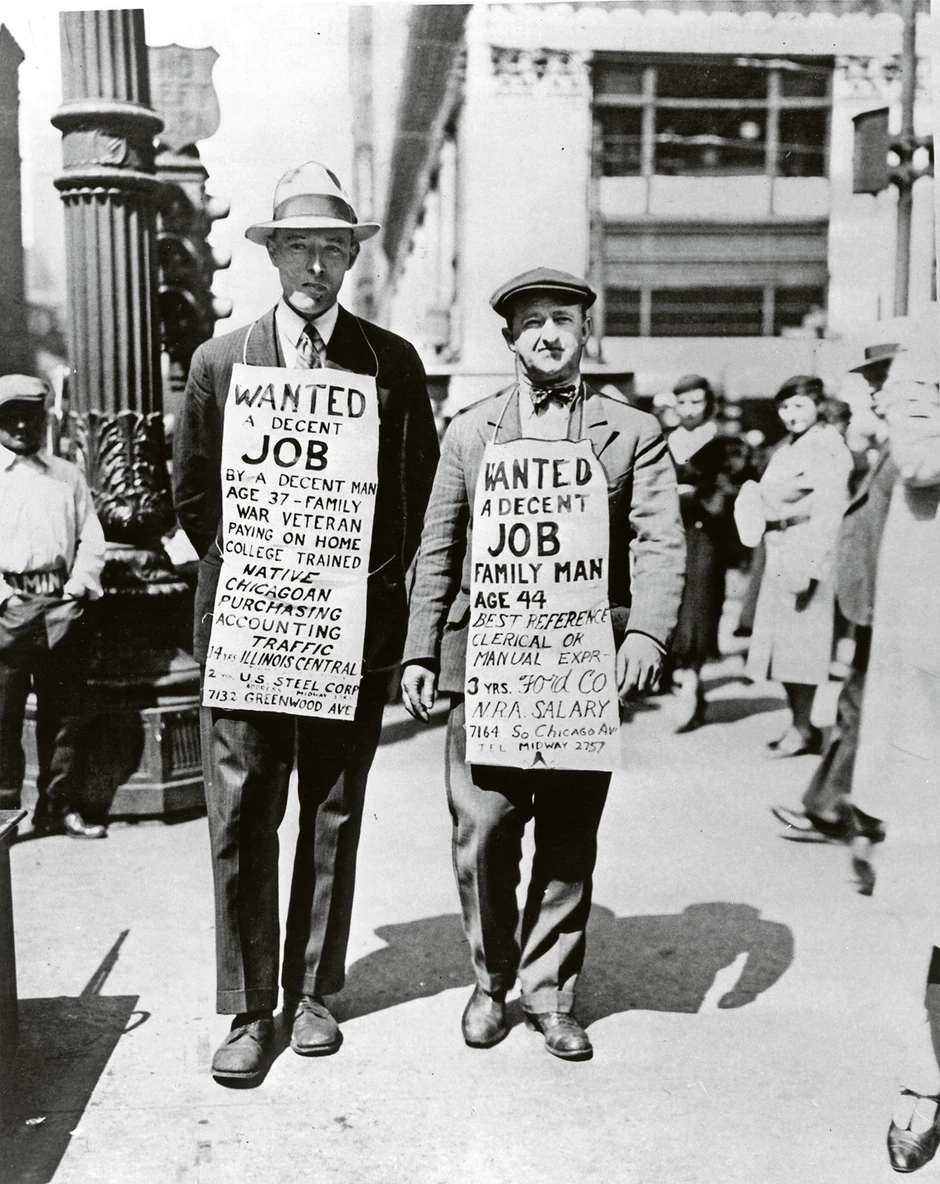 WANTED
A DECENT
JOB
BY A DECENT MAN
AGE 37-FAMILY
WAR VETERAN
PAYING ON HOME
COLLEGE TRAINED
NATIVE
CHICAGOAN
PURCHASING
ACCOUNTING
TRAFFIC
14 YRS ILLINOIS CENTRAL
2 YRS U.S. STEEL CORP
ADDRESS MIDWAY
7132 GREENWOOD AVE
WANTED
A DECENT
JOB
FAMILY MAN
AGE 44
BEST REFERENCE
CLERICAL OR
MANUAL EXPR-
3 YRS. Ford CO
N.R.A. SALARY
7164 So CHICAGO AV
TEL MIDWAY 2757